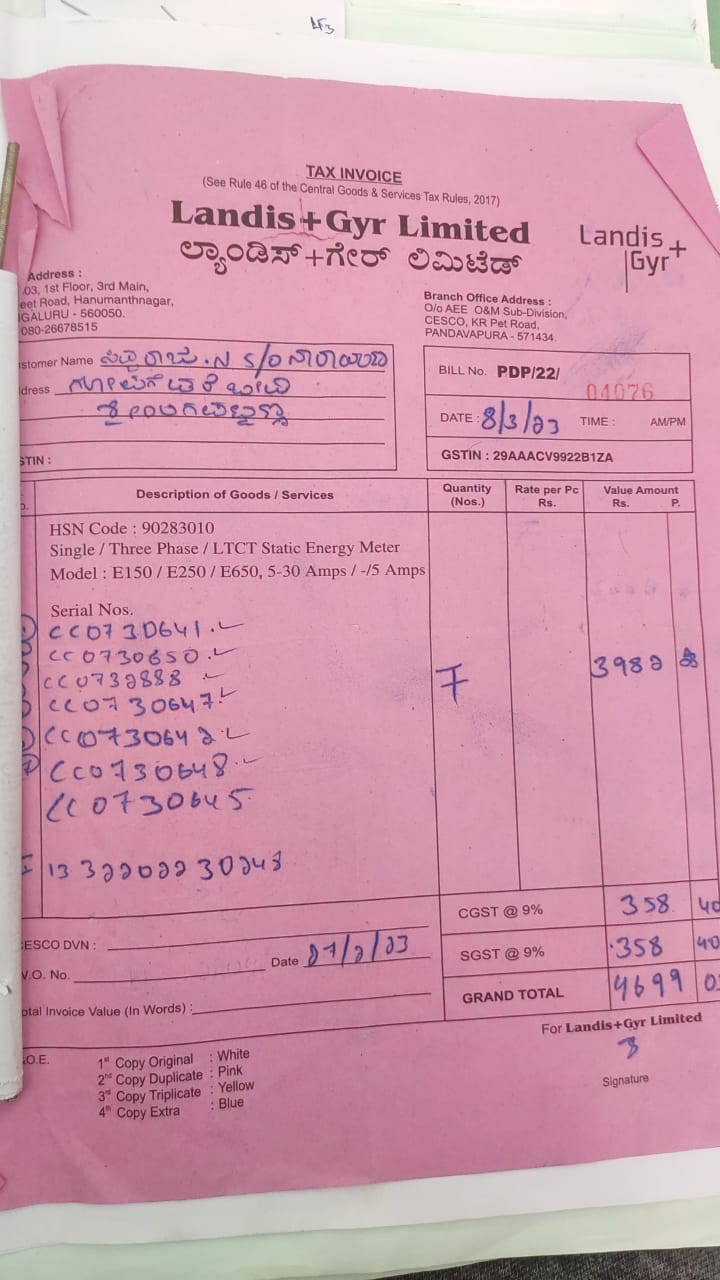 LF3
TAX INVOICE
(See Rule 46 of the Central Goods & Services Tax Rules, 2017)
Landis+Gyr Limited
ಲ್ಯಾಂಡಿಸ್+ಗೇರ್ ಲಿಮಿಟೆಡ್
Landis+
Gyr
Address :
03, 1st Floor, 3rd Main,
eet Road, Hanumanthnagar,
GALURU - 560050.
080-26678515
Branch Office Address :
O/o AEE O&M Sub-Division,
CESCO, KR Pet Road,
PANDAVAPURA - 571434.
stomer Name N S/O ನಾರಾಯಣ
dress
STIN :
BILL No. PDP/22/ 04076
DATE : 8/3/23 TIME : AM/PM
GSTIN : 29AAACV9922B1ZA
Description of Goods / Services
Quantity (Nos.)
Rate per Pc Rs.
Value Amount Rs. P.
HSN Code : 90283010
Single / Three Phase / LTCT Static Energy Meter
Model : E150 / E250 / E650, 5-30 Amps / -/5 Amps
Serial Nos.
CC0730641.
CC0730650.
CC0732888
CC0730647.
CC0730642.
CC0730648.
CC0730645.
7
3982
13 322022 30248
CGST @ 9% 358. 40
SGST @ 9% 358 40
GRAND TOTAL 4699
ESCO DVN :
V.O. No. Date 27/2/23
otal Invoice Value (In Words) :
For Landis+Gyr Limited
Signature
.O.E.
1st Copy Original : White
2nd Copy Duplicate : Pink
3rd Copy Triplicate : Yellow
4th Copy Extra : Blue